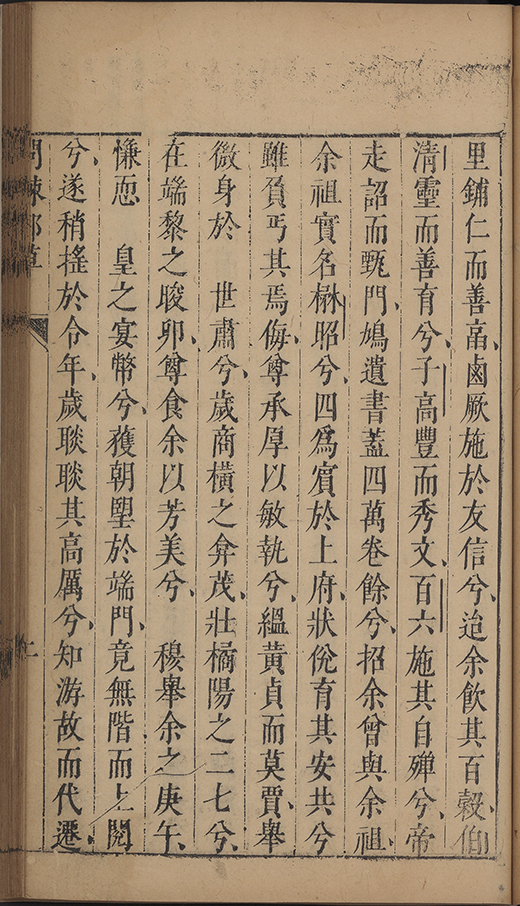 里鋪仁而善畐鹵厥施於友信兮迨余飲其百穀伯
清靈而善育兮子高豐而秀文百六施其自殫兮帝
走詔而甄門鳩遺書蓋四萬卷餘兮招余曾與余祖
余祖實名楙昭兮四爲賓於上府狀侻育其安共兮
雖負丐其焉侮尊承厚以敏執兮緼黃貞而莫賈舉
微身於 世肅兮歲商橫之弇茂壯橘陽之二七兮
在端黎之晙卯尊食余以芳美兮 穆舉余之庚午
慊恧 皇之宴幣兮蒦朝朢於端門竟無階而上閱
兮遂稍搖於令年歲聅聅其高厲兮知游故而代遷
問棘郵草